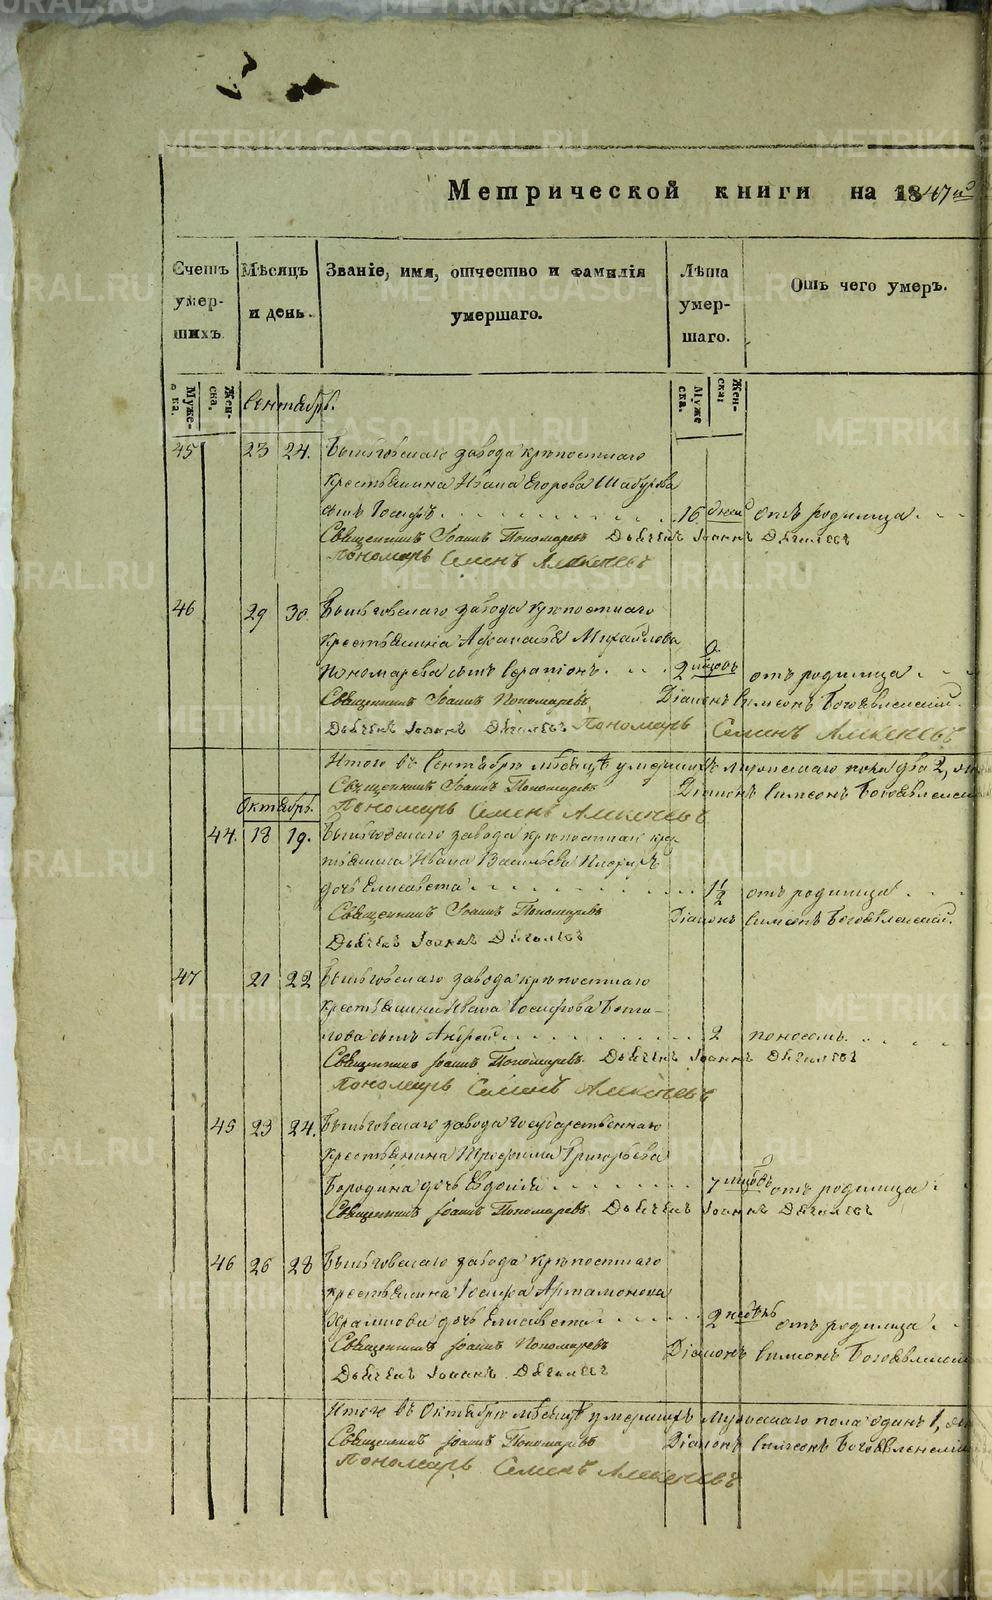 Метрической книги на 1847й
Счетъ умер- шихъ.
Мѣсяцъ и день.
Званіе, имя, отчество и фамилія умершаго.
Лѣта умер- шаго.
Отъ чего умеръ.
Муже- ска.
Жен- ска.
Сентябрь.
Муже ска.
Жен- ска.
45 23 24. завода крѣпостнаго
крестьянина Ивана Егорова Шабурова
сынъ Іосифъ 16 дней отъ родимца
Священникъ Іоаннъ Пономаревъ Дьячекъ Іоаннъ Дягилевъ
Пономарь Семенъ Алексеевъ
46 29 30. завода крѣпостнаго
крестьянина Афанасья Михайлова
Пономарева сынъ Серапіонъ 2 мѣсяцовъ отъ родимца
Священникъ Іоаннъ Пономаревъ Діаконъ Симеонъ Богоявленскій
Дьячекъ Іоаннъ Дягилевъ Пономарь Семенъ Алексеевъ
Итого въ Сентябрѣ мѣсяцѣ умершихъ мужескаго пола два 2,
Священникъ Іоаннъ Пономаревъ Діаконъ Симеонъ Богоявленскій
Октябрь. Пономарь Семенъ Алексеевъ
44. 18 19. завода крѣпостнаго кре-
стьянина Ивана Васильева
дочь Елисавета 1 1/2 отъ родимца
Священникъ Іоаннъ Пономаревъ Діаконъ Симеонъ Богоявленскій
Дьячекъ Іоаннъ Дягилевъ
47 21 22 завода крѣпостнаго
крестьянина Ивана Іосифова
сынъ Андрей 2 поносомъ.
Священникъ Іоаннъ Пономаревъ Дьячекъ Іоаннъ Дягилевъ
Пономарь Семенъ Алексеевъ
45 23 24. завода государственнаго
крестьянина Григорьева
Бородина дочь Евдокія 7 мѣсяцовъ отъ родимца
Священникъ Іоаннъ Пономаревъ Дьячекъ Іоаннъ Дягилевъ
46 26 28 завода крѣпостнаго
крестьянина Іосифа Артамонова
дочь Елисавета 2 недѣль отъ родимца
Священникъ Іоаннъ Пономаревъ Діаконъ Симеонъ Богоявленскій
Дьячекъ Іоаннъ Дягилевъ
Итого въ Октябрѣ мѣсяцѣ умершихъ мужескаго пола одинъ 1,
Священникъ Іоаннъ Пономаревъ Діаконъ Симеонъ Богоявленскій
Пономарь Семенъ Алексеевъ
METRIKI.GASO-URAL.RU